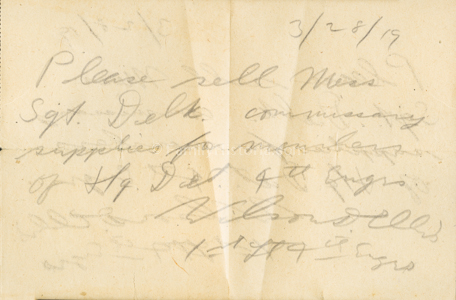 3/28/19
Please sell Mess
Sgt. Delk. commissary
supplies for members
of Hq. Det. 4th Engrs.
1st Lt 4th Engrs